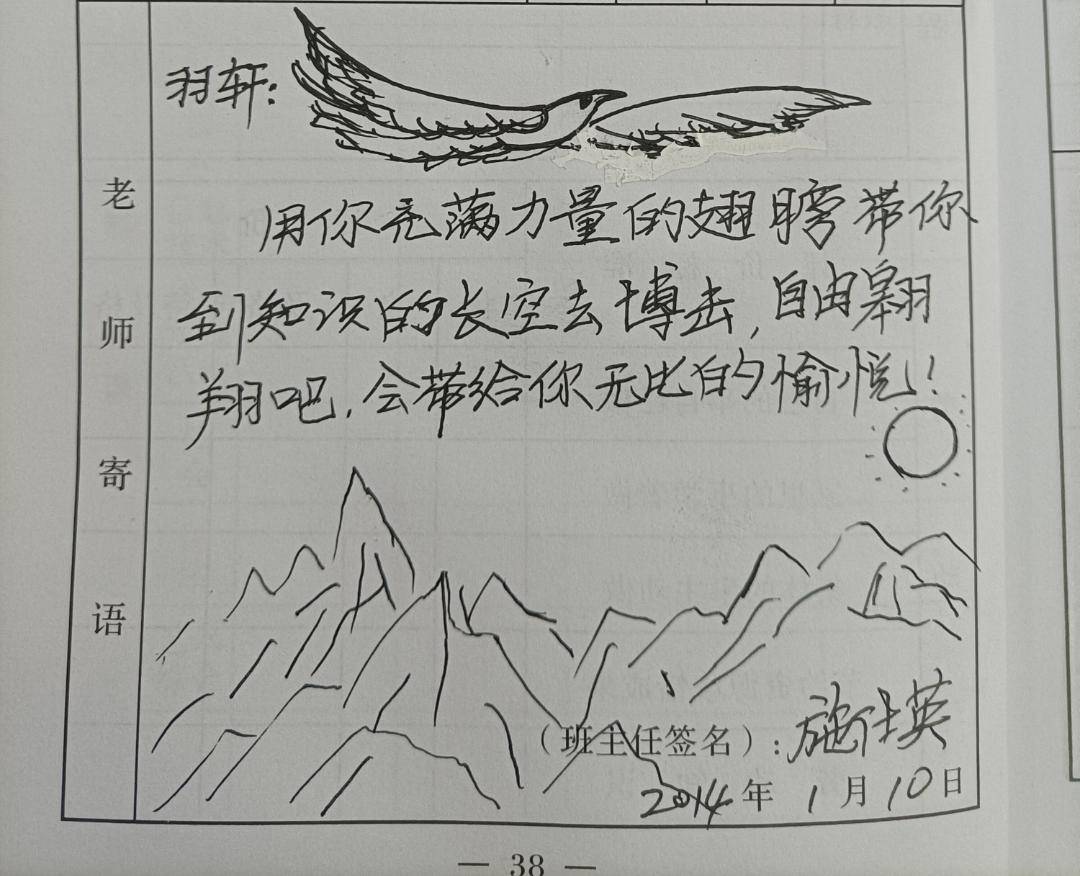 老师寄语
羽轩:
用你充满力量的翅膀带你
到知识的长空去博击,自由翱
翔吧,会带给你无比的愉悦!!
(班主任签名):施仕英
2014年1月10日
— 38 —